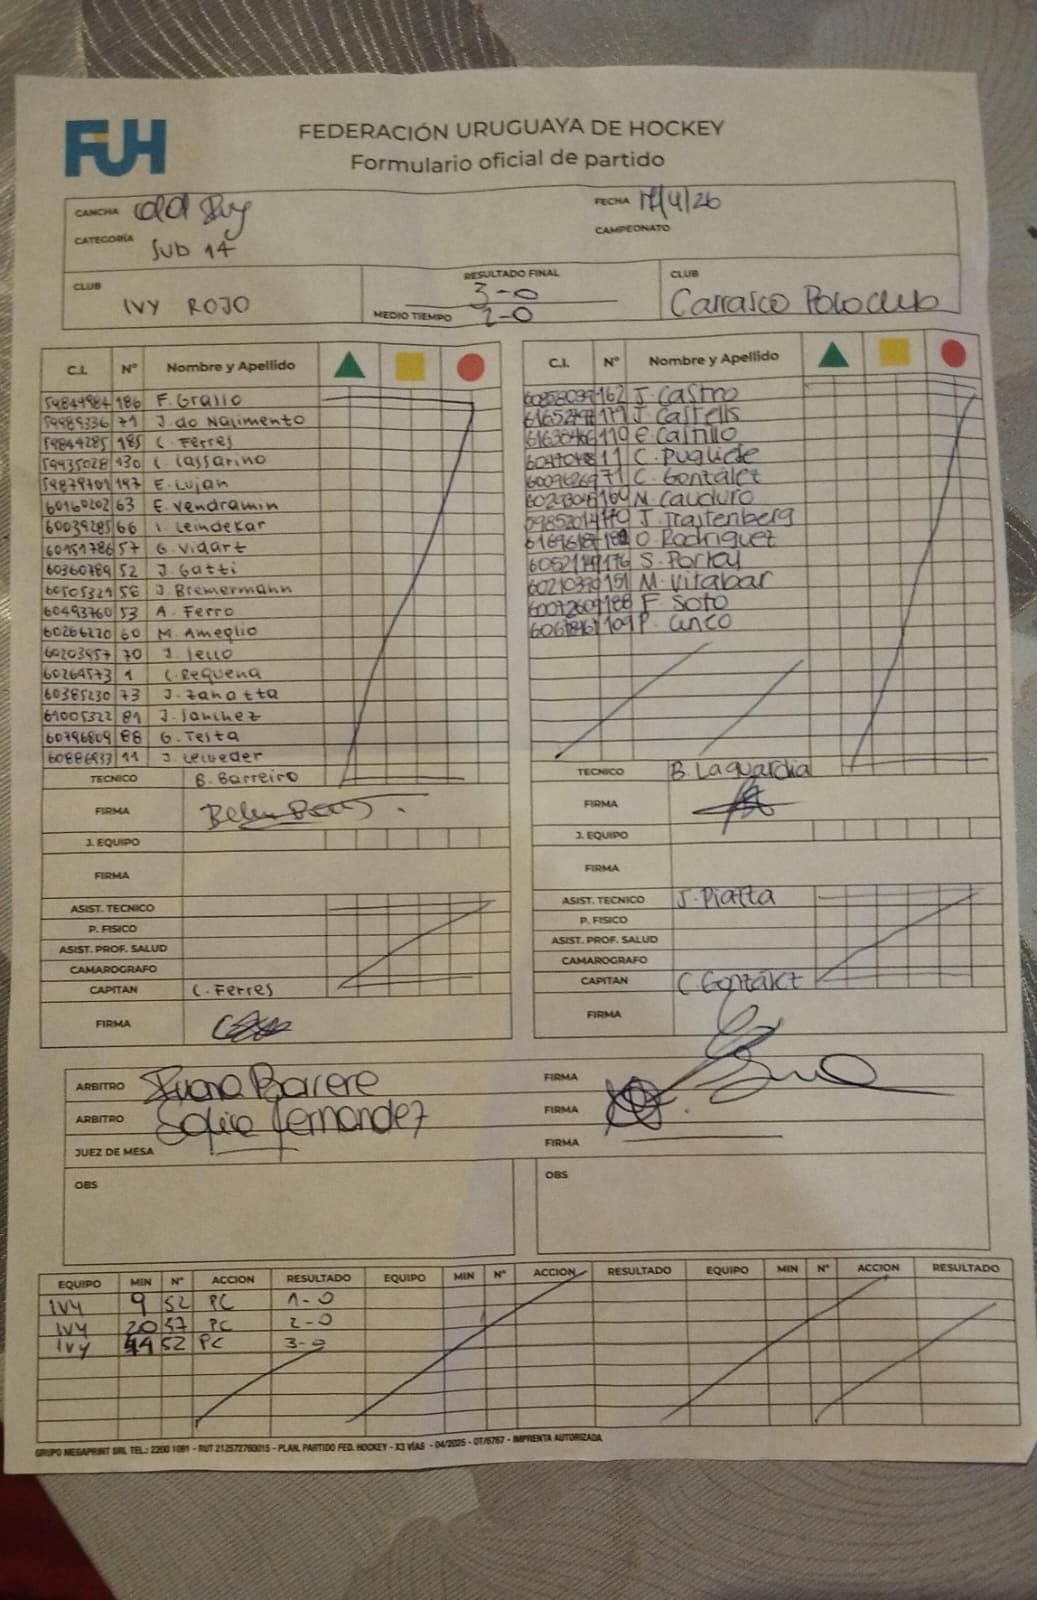 FUH
FEDERACIÓN URUGUAYA DE HOCKEY
Formulario oficial de partido
CANCHA Old Ivy FECHA 17/4/26
CATEGORÍA Sub 14 CAMPEONATO
CLUB IVY ROJO
RESULTADO FINAL 3-0
MEDIO TIEMPO 2-0
CLUB Carrasco Polo club
C.I. Nº Nombre y Apellido
59844984 186 F. Grallo
59989336 71 J. do Nacimento
59844285 185 C. Ferres
59435028 130 C. Cassarino
59879701 197 E. Lujan
60160202 63 E. Vendramin
60039285 66 I. Leindekar
60151786 57 G. Vidart
60360789 52 J. Gatti
60505321 56 J. Bremermann
60493760 53 A. Ferro
60266220 60 M. Ameglio
60203957 70
60264573 1 C. Requena
60385230 73 J. Zanatta
61005322 81 J. Sanchez
60796809 88 G. Testa
60886933 11
TECNICO B. Barreiro
FIRMA
J. EQUIPO
FIRMA
ASIST. TECNICO
P. FISICO
ASIST. PROF. SALUD
CAMAROGRAFO
CAPITAN C. Ferres
FIRMA
C.I. Nº Nombre y Apellido
162 J. Castro
J. Castells
110 E. Castillo
11 C. Puglide
71 C. Gonzálet
164 N. Cauduro
J. Trajtenberg
O. Rodriguez
176 S. Portay
151 M. Vitabar
188 F. Soto
109 P. Cinco
TECNICO B. Laguardia
FIRMA
J. EQUIPO
FIRMA
ASIST. TECNICO J. Piatta
P. FISICO
ASIST. PROF. SALUD
CAMAROGRAFO
CAPITAN C. Gonzálet
FIRMA
ARBITRO Barrere FIRMA
ARBITRO Sofia Fernandez FIRMA
JUEZ DE MESA FIRMA
OBS OBS
EQUIPO MIN Nº ACCION RESULTADO EQUIPO MIN Nº ACCION RESULTADO EQUIPO MIN Nº ACCION RESULTADO
IVY 9 52 PC 1-0
IVY 20 57 PC 2-0
IVY 44 52 PC 3-0
GRUPO MEGAPRINT SRL TEL.: 2200 1091 - RUT 212572760015 - PLAN. PARTIDO FED. HOCKEY - X3 VÍAS - 04/2025 - OT/6767 - IMPRENTA AUTORIZADA